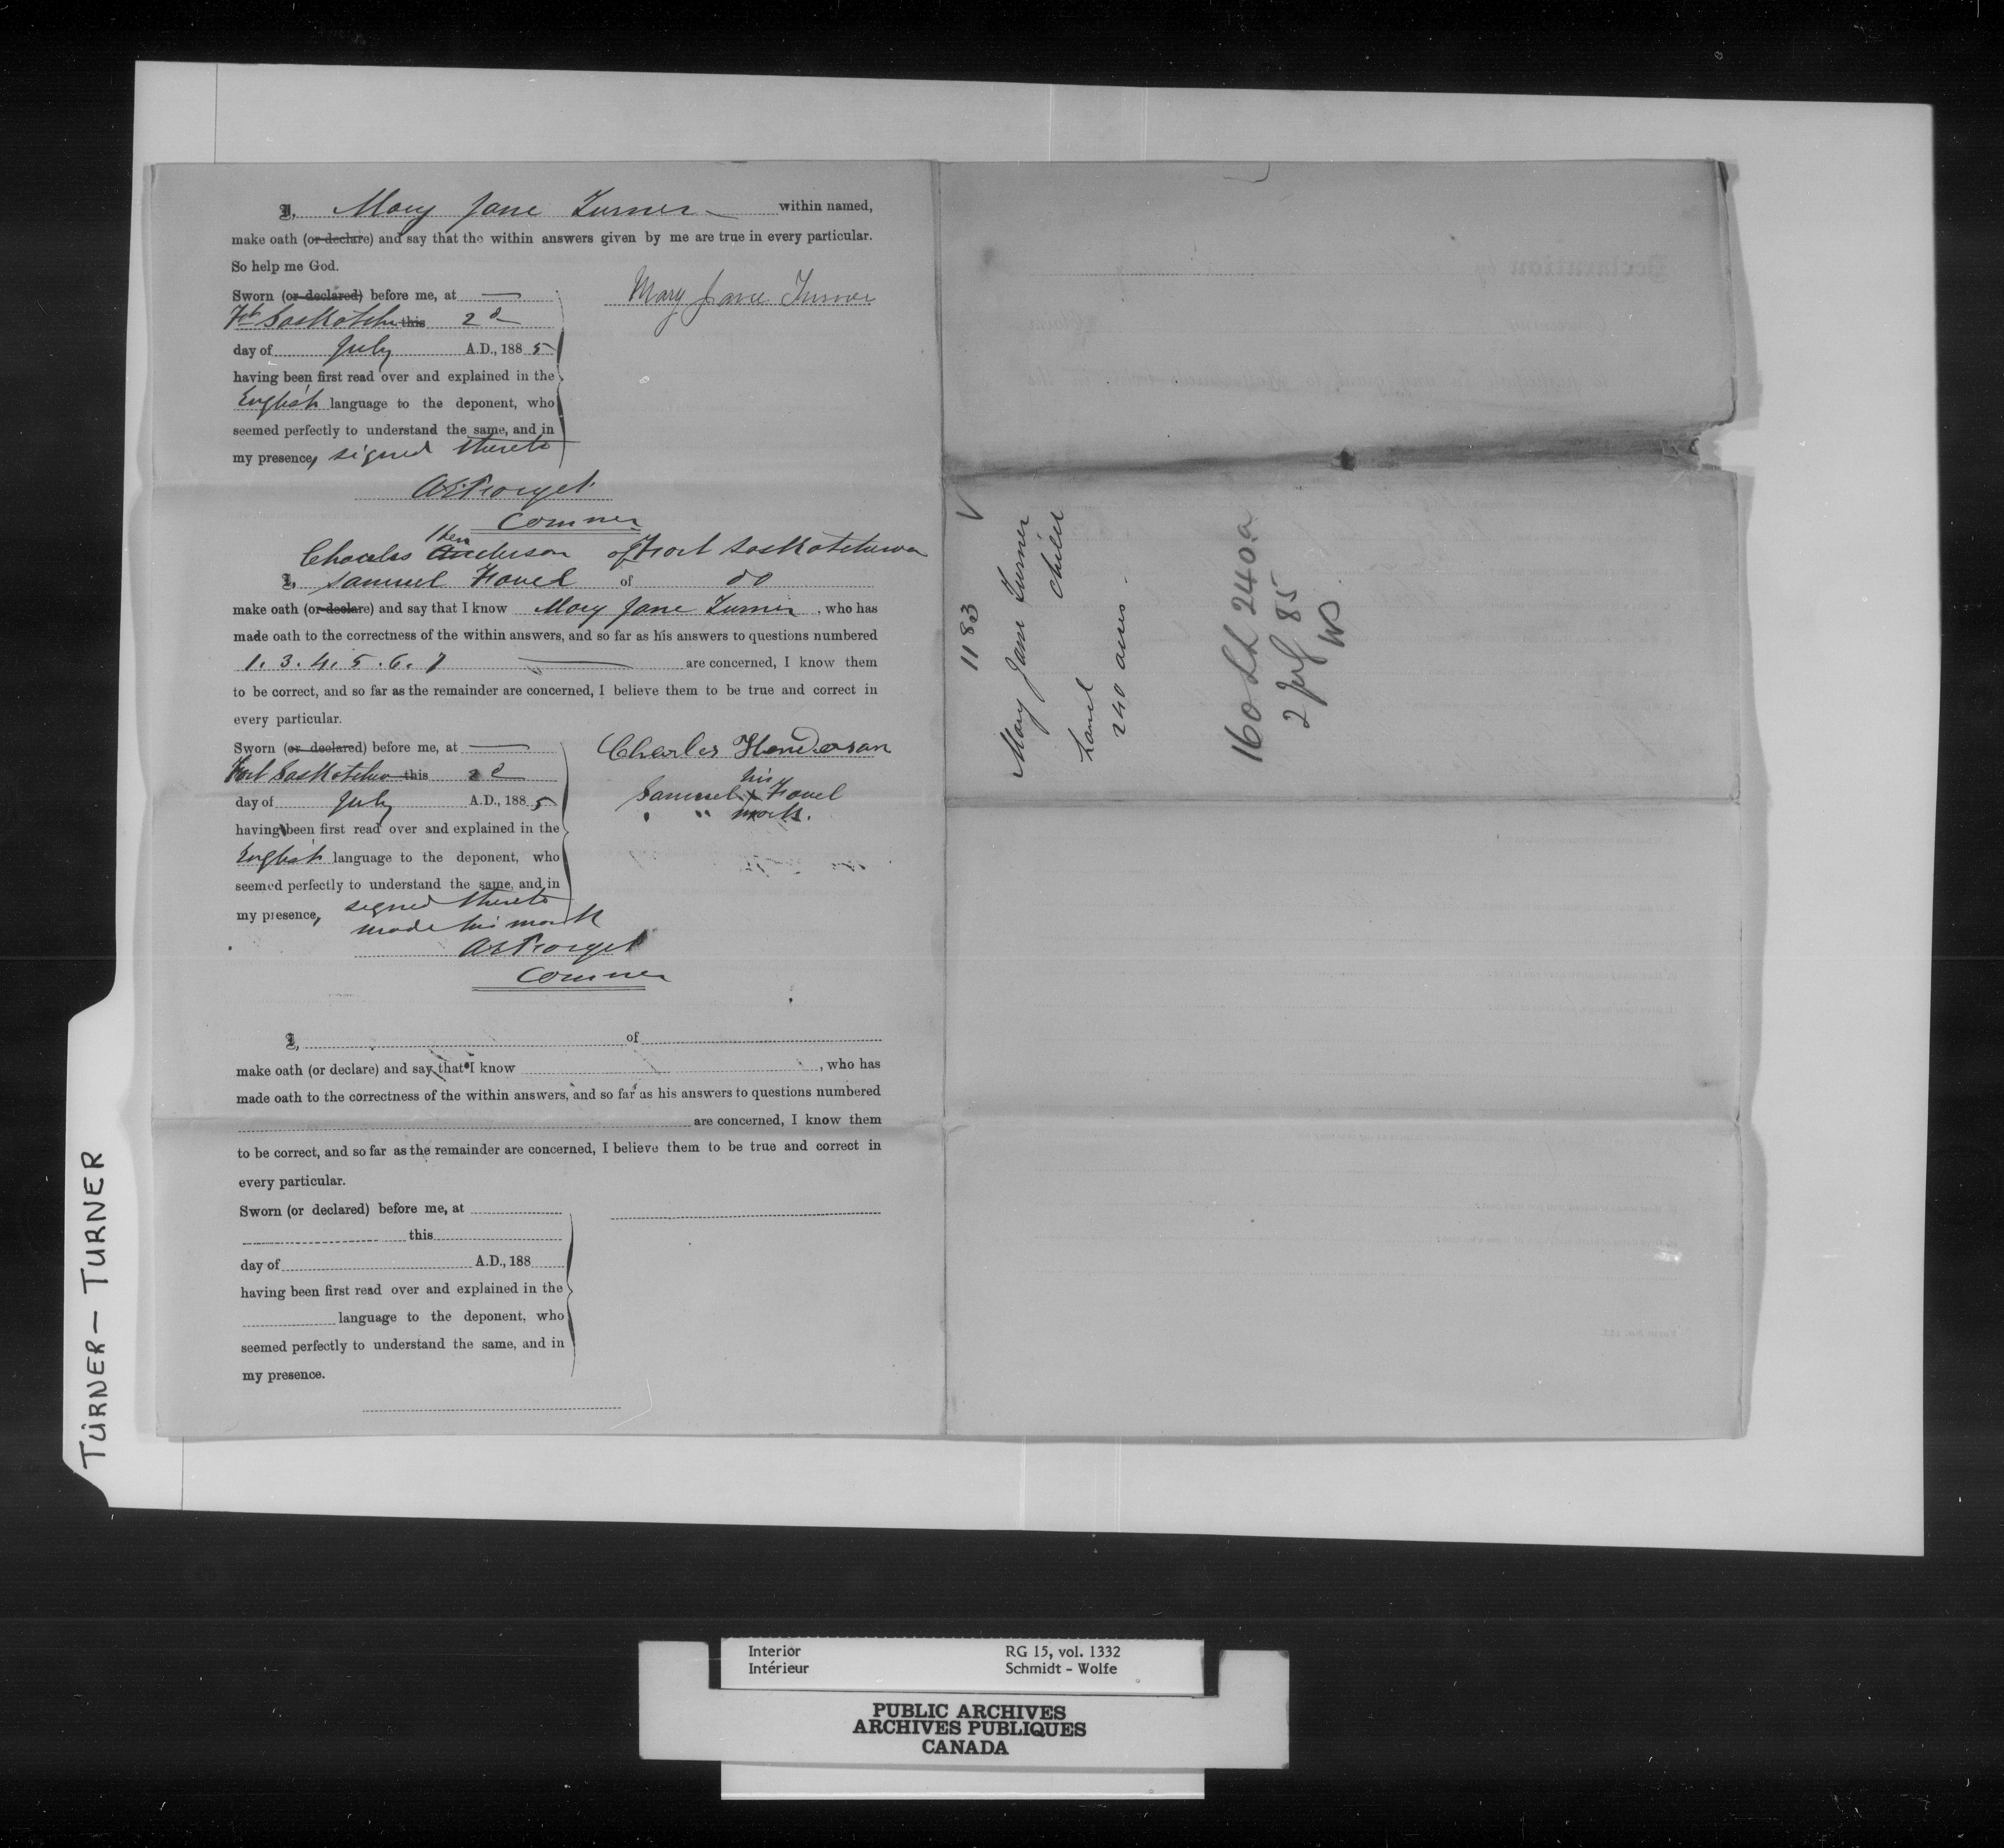 I, Mary Jane Turner within named,
make oath (or declare) and say that the within answers given by me are true in every particular.
So help me God.
Sworn (or declared) before me, at
Ft Saskatchn this 2d
day of July A.D., 1885
having been first read over and explained in the
English language to the deponent, who
seemed perfectly to understand the same, and in
my presence, signed thereto
Mary Jane Turner
AE Forget
Commer
Charles Henderson of Fort Saskatchewan
I, Samuel Favel of do
make oath (or declare) and say that I know Mary Jane Turner, who has
made oath to the correctness of the within answers, and so far as his answers to questions numbered
1. 3. 4. 5. 6. 7 are concerned, I know them
to be correct, and so far as the remainder are concerned, I believe them to be true and correct in
every particular.
Sworn (or declared) before me, at
Fort Saskatchn this 2d
day of July A.D., 1885
having been first read over and explained in the
English language to the deponent, who
seemed perfectly to understand the same, and in
my presence, signed thereto
made his mark
Charles Henderson
his
Samuel X Favel
" " mark.
AE Forget
Commer
I, of
make oath (or declare) and say that I know , who has
made oath to the correctness of the within answers, and so far as his answers to questions numbered
are concerned, I know them
to be correct, and so far as the remainder are concerned, I believe them to be true and correct in
every particular.
Sworn (or declared) before me, at
this
day of A.D., 188
having been first read over and explained in the
language to the deponent, who
seemed perfectly to understand the same, and in
my presence.
1183
Mary Jane Turner
child
Land
240 acres.
240a
2 July 85
TURNER – TURNER
Interior
Intérieur
RG 15, vol. 1332
Schmidt - Wolfe
PUBLIC ARCHIVES
ARCHIVES PUBLIQUES
CANADA